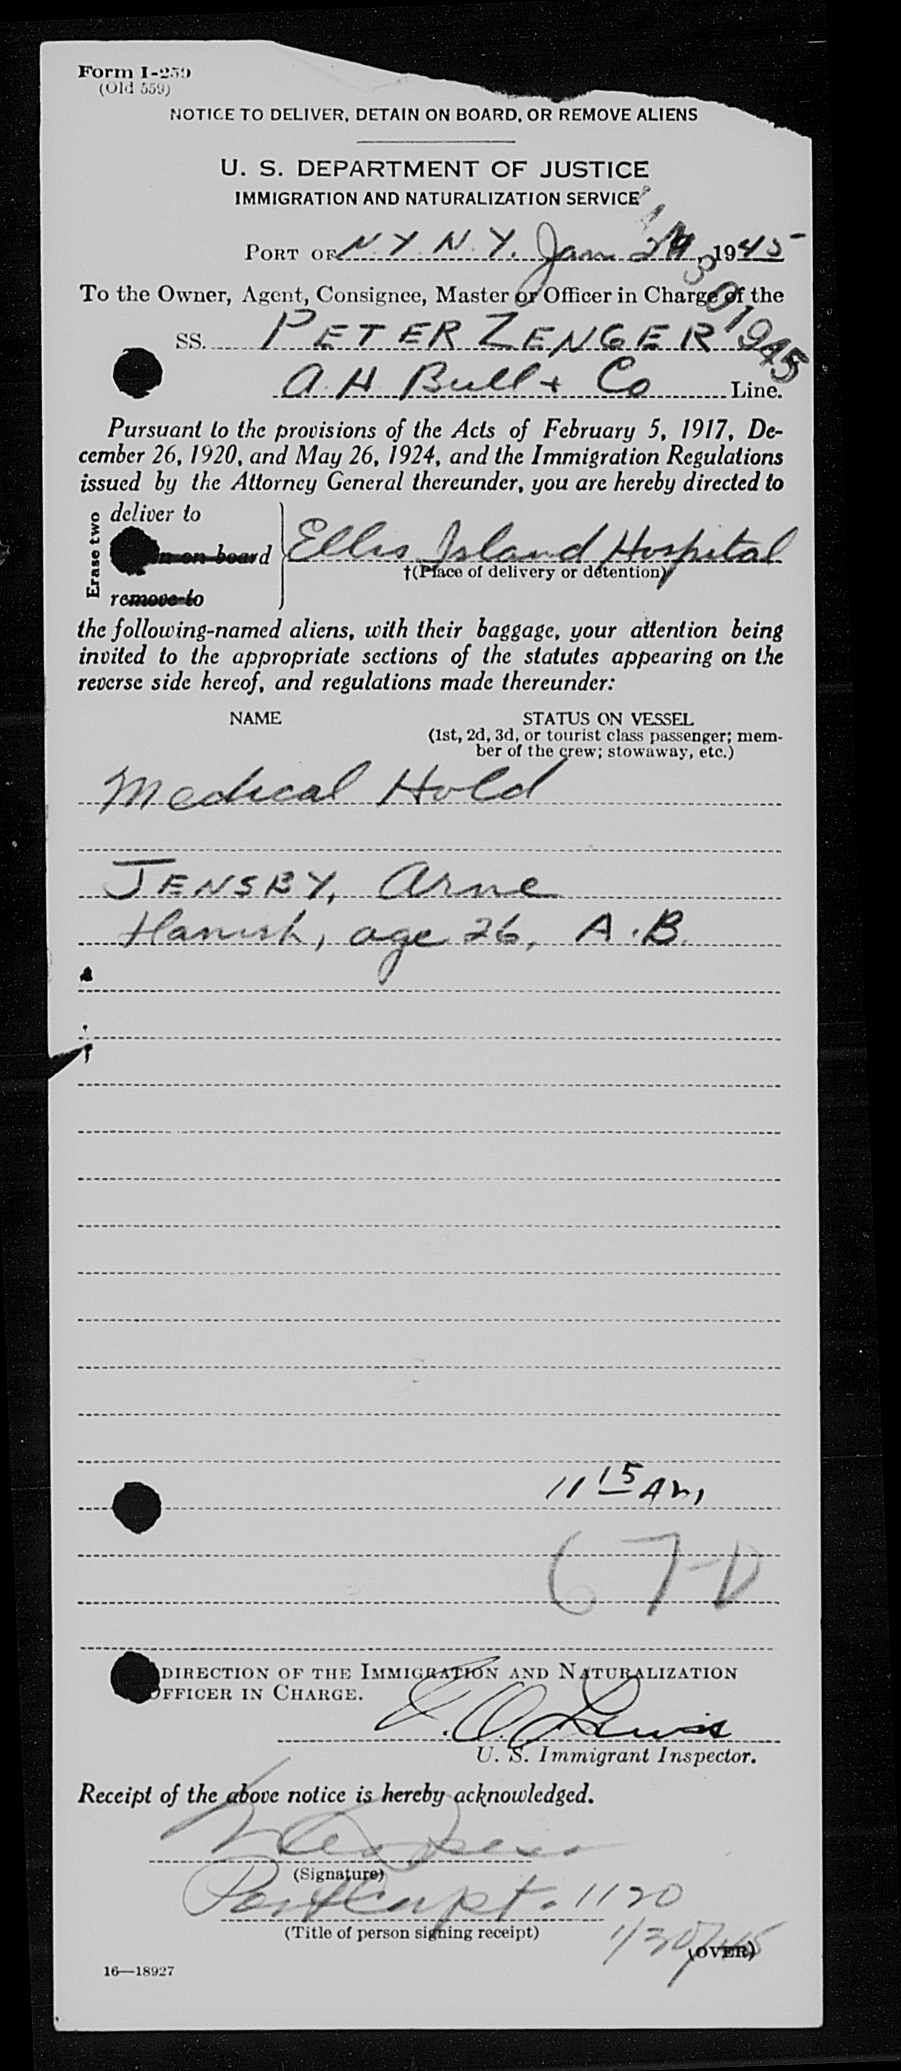 Form I-259
(Old 559)
NOTICE TO DELIVER, DETAIN ON BOARD, OR REMOVE ALIENS
U. S. DEPARTMENT OF JUSTICE
IMMIGRATION AND NATURALIZATION SERVICE
PORT OF N.Y. N.Y. Jan 1945
To the Owner, Agent, Consignee, Master or Officer in Charge of the
SS. PETER ZENGER
A. H. Bull & Co Line.
Pursuant to the provisions of the Acts of February 5, 1917, De-
cember 26, 1920, and May 26, 1924, and the Immigration Regulations
issued by the Attorney General thereunder, you are hereby directed to
Erase two
deliver to
n on board Ellis Island Hospital
†(Place of delivery or detention)
remove to
the following-named aliens, with their baggage, your attention being
invited to the appropriate sections of the statutes appearing on the
reverse side hereof, and regulations made thereunder:
NAME STATUS ON VESSEL
(1st, 2d, 3d, or tourist class passenger; mem-
ber of the crew; stowaway, etc.)
Medical Hold
JENSBY, Arne
age 26, A.B.
11 15 AM
67-D
DIRECTION OF THE IMMIGRATION AND NATURALIZATION
OFFICER IN CHARGE.
Lewis
U. S. Immigrant Inspector.
Receipt of the above notice is hereby acknowledged.
(Signature)
Port Capt. 1120
(Title of person signing receipt)
1/30/45
(OVER)
16—18927